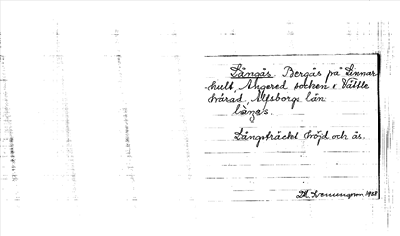 Långås. Bergås på Linnar-
hult, Angered socken i Vättle
härad, Älfsborgs län
Långsträckt höjd och ås.
1928